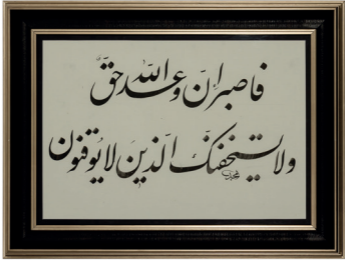 فاصبر إنّ وعد اللّه حقّ
ولا يستخفنّك الّذين لا يوقنون